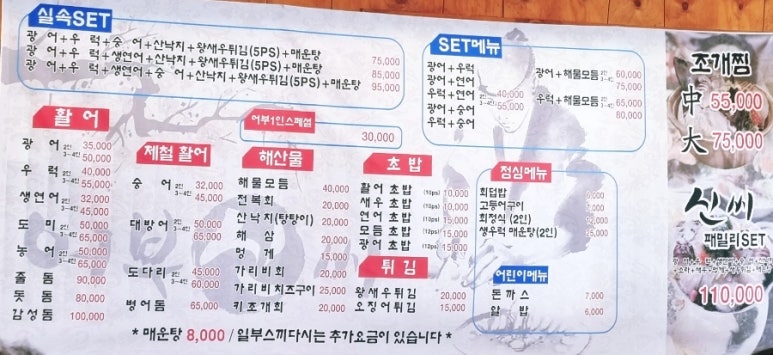 실속SET
광 어+우 럭+숭 어+산낙지+왕새우튀김(5PS)+매운탕 75,000
광 어+우 럭+생연어+산낙지+왕새우튀김(5PS)+매운탕 85,000
광 어+우 럭+생연어+숭 어+산낙지+왕새우튀김(5PS)+매운탕 95,000
SET메뉴
광어+우럭
광어+연어
우럭+연어 2인 40,000
광어+숭어 3~4인 55,000
우럭+숭어
광어+해물모듬 2인 60,000
3~4인 75,000
우럭+해물모듬 2인 65,000
3~4인 80,000
어부1인스페셜
30,000
활 어
광 어 2인 35,000
3~4인 50,000
우 럭 2인 40,000
3~4인 55,000
생연어 2인 32,000
3~4인 45,000
도 미 2인 50,000
3~4인 65,000
농 어 2인 50,000
3~4인 65,000
줄 돔 90,000
돗 돔 80,000
감성돔 100,000
제철 활어
숭 어 2인 32,000
3~4인 45,000
대방어 2인 50,000
3~4인 65,000
도다리 2인 45,000
3~4인 60,000
병어돔 65,000
해산물
해물모듬 40,000
전복회 20,000
산낙지(탕탕이) 20,000
해 삼 20,000
멍 게 20,000
가리비회 20,000
가리비치즈구이 25,000
키조개회 20,000
초 밥
활어초밥 (10ps) 10,000
새우초밥 (10ps) 10,000
연어초밥 (10ps) 15,000
모듬초밥 (12ps) 15,000
광어초밥 (12ps) 15,000
튀 김
왕새우튀김 20,000
오징어튀김 15,000
점심메뉴
회덮밥
고등어구이
회정식 (2인)
생우럭 매운탕(2인)
어린이메뉴
돈 까스 7,000
알 밥 6,000
* 매운탕 8,000 / 일부스끼다시는 추가요금이 있습니다 *
조개찜
中 55,000
大 75,000
신씨
패밀리SET
110,000